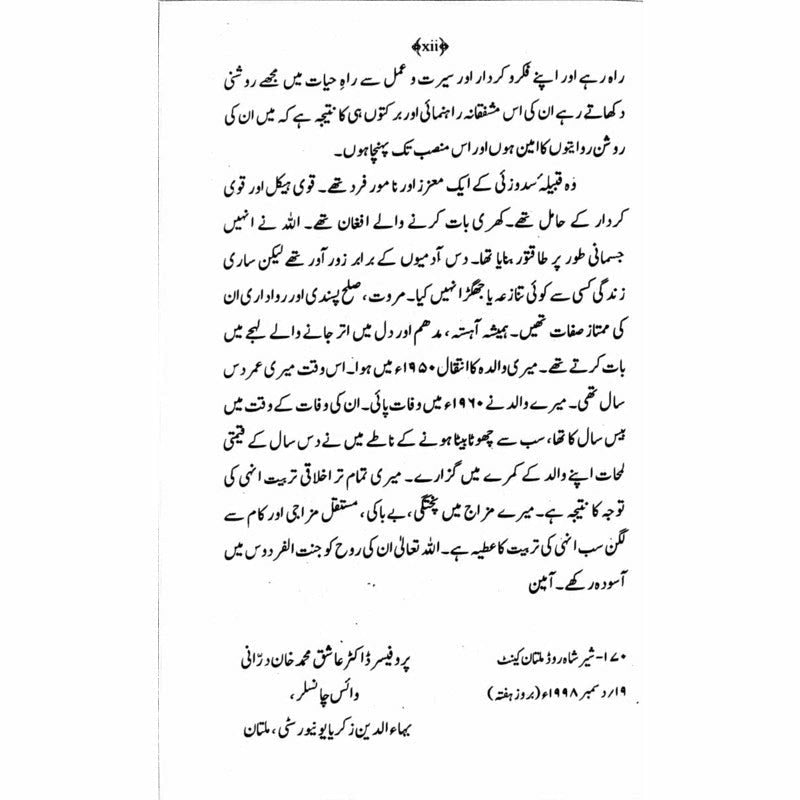 ﴾xii﴿
راہ رہے اور اپنے فکر و کردار اور سیرت و عمل سے راہِ حیات میں مجھے روشنی
دکھاتے رہے ان کی اس مشفقانہ راہنمائی اور برکتوں ہی کا نتیجہ ہے کہ میں ان کی
روشن روایتوں کا امین ہوں اور اس منصب تک پہنچا ہوں۔
وہ قبیلۂ سدوزئی کے ایک معزز اور نامور فرد تھے۔ قوی ہیکل اور قوی
کردار کے حامل تھے۔ کھری بات کرنے والے افغان تھے۔ اللہ نے انہیں
جسمانی طور پر طاقتور بنایا تھا۔ دس آدمیوں کے برابر زور آور تھے لیکن ساری
زندگی کسی سے کوئی تنازعہ یا جھگڑا نہیں کیا۔ مروت، صلح پسندی اور رواداری ان
کی ممتاز صفات تھیں۔ ہمیشہ آہستہ، مدھم اور دل میں اتر جانے والے لہجے میں
بات کرتے تھے۔ میری والدہ کا انتقال ۱۹۵۰ء میں ہوا۔ اس وقت میری عمر دس
سال تھی۔ میرے والد نے ۱۹۶۰ء میں وفات پائی۔ ان کی وفات کے وقت میں
بیس سال کا تھا، سب سے چھوٹا بیٹا ہونے کے ناطے میں نے دس سال کے قیمتی
لمحات اپنے والد کے کمرے میں گزارے۔ میری تمام تر اخلاقی تربیت انہی کی
توجہ کا نتیجہ ہے۔ میرے مزاج میں پختگی، بے باکی، مستقل مزاجی اور کام سے
لگن سب انہی کی تربیت کا عطیہ ہے۔ اللہ تعالیٰ ان کی روح کو جنت الفردوس میں
آسودہ رکھے۔ آمین
۱۷۰- شیر شاہ روڈ ملتان کینٹ
۱۹/ دسمبر ۱۹۹۸ء (بروز ہفتہ)
پروفیسر ڈاکٹر عاشق محمد خان درّانی
وائس چانسلر،
بہاء الدین زکریا یونیورسٹی، ملتان